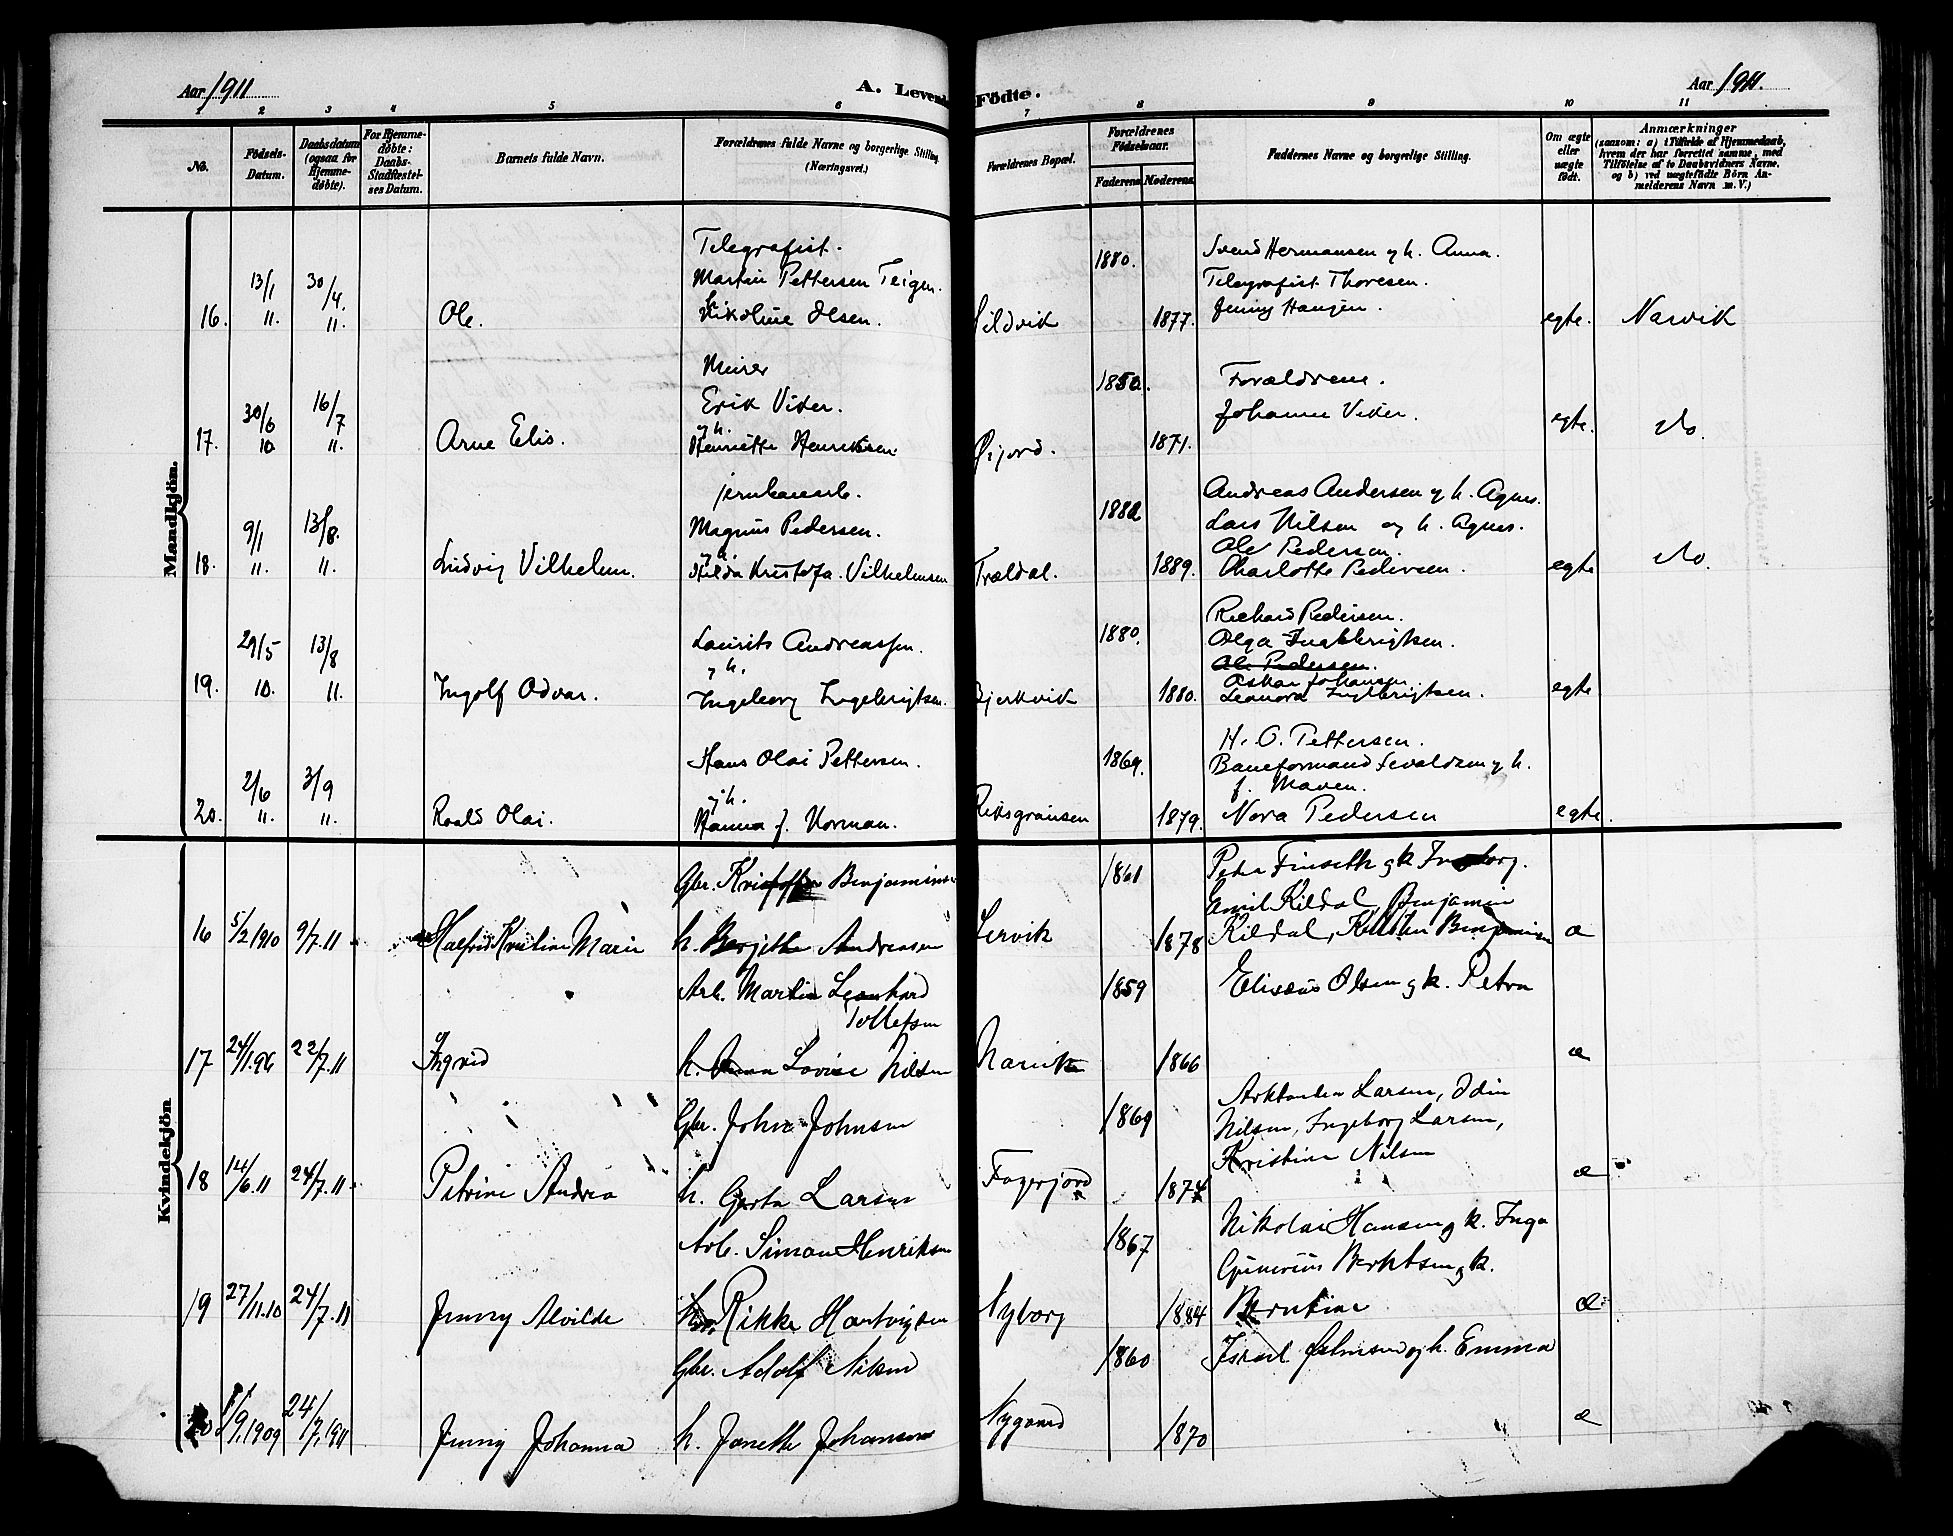 Aar 1911
A. Levende
Fødte.
Aar 1911.
1 2 3 4 5 6 7 8 9 10 11
No.
Födsels-
Datum.
Daabsdatum
(ogsaa for
Hjemme-
döbte).
For Hjemme-
döbte:
Daabs-
Stadfæstel-
ses Datum.
Barnets fulde Navn.
Forældrenes fulde Navne og borgerlige Stilling
(Næringsvei.)
Forældrenes Bopæl.
Forældrenes
Födselsaar.
Faderens
Moderens
Faddernes Navne og borgerlige Stilling.
Om ægte
eller
uægte
födt.
Anmærkninger
(saasom: a) i Tilfælde af Hjemmedaab,
hvem der har forrettet samme, med
Tilföielse af to Daabsvidners Navne,
og b) ved uægtefödte Börn An-
melderens Navn m. V.)
Mandkjön.
Telegrafist.
1880.
Svend Hermansen og h. Anna.
13/1
30/4.
Martin Pettersen Teigen.
Telegrafist Thoresen.
16.
11.
11.
Ole.
Nikoline Olsen.
Sildvik
1877.
Jenny Hansen.
egte.
Narvik
Murer
1850.
Forældrene.
30/6
16/7
Erik Viker.
Johanne Viker.
og h.
17.
10.
11.
Arne Elis.
Henriette Henriksen.
Øijord.
1871.
egte.
do.
jernbanearb.
1882
Andreas Andersen og h. Agnes.
9/1
13/8.
Magnus Pedersen.
Lars Nilsen og h. Agnes.
og h.
Ole Pedersen.
18.
11.
11.
Ludvig Vilhelm.
Hilda Kristofa Vilhelmsen
Trældal.
1889.
Charlotte Pedersen.
egte
do.
Richard Pedersen.
29/5
13/8
Laurits Andreassen.
1880.
Olga Ingebrigtsen.
og h.
Ole Pedersen.
Oskar Johansen.
19.
10.
11.
Ingolf Odvar.
Ingeborg Ingebrigtsen.
Bjerkvik
1880.
Leonora Ingebrigtsen.
egte
H. O. Pettersen.
2/6
3/9
Hans Olai Pettersen.
1869.
Baneformand Sevaldsen og h.
og h.
f. Maven.
20.
11.
11.
Roald Olai.
Hanna f. Norman.
Riksgrænsen
1879.
Nora Pedersen
egte.
Kvindekjön
Gbr. Kristoffer Benjaminsen
1861
Peter Finseth og k. Ingeborg.
Emil Kildal, Benjamin
16
5/2 1910
9/7.11
Halfrid Kristine Marie
h. Berjithe Andreasen
Lervik
1878
Kildal, Kirsten Benjaminsen
æ
Arb. Martin Leonhard
Tollefsen
1859
Eliseus Olsen og k. Petra
17
24/1.96
22/7.11
Ingrid
h. Anna Lovise Nilsen
Narvik
1866
æ
Gbr. John Johnsen
1869
Larsen, Odin
Nilsen, Ingeborg Larsen,
Kristine Nilsen
18
14/6.11
24/7.11
Petrine Andrea
h. Gerta Larsen
Fagerjord
1874
æ
Arb. Simon Henriksen
1867
Nikolai Hansen og k. Inga
Gunerius Berntsen og k.
19
27/11.10
24/7.11
Jenny Alvilde
h. Rikke Hartvigsen
Nyborg
1884
Berntine
æ
Gbr. Adolf Nilsen
1860
Israel Johnsen og h. Emma
20
1/9,1909
24/7,1911
Jenny Johanna
h. Janette Johansen
Nygaard
1870
æ